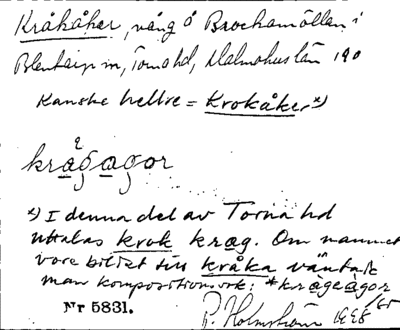 Kråkåker, vång å Brochamöllan i
Blentarp sn, Torna hd, Malmöhus län 190
Kanske hellre = Krokåker *)
krågagor
*) I denna del av Torna hd
uttalas krok kræg. Om namnet
vore bildat till kråka väntade
man kompositionsvok: *krageagor
Nr 5831. P. Holmström 1998